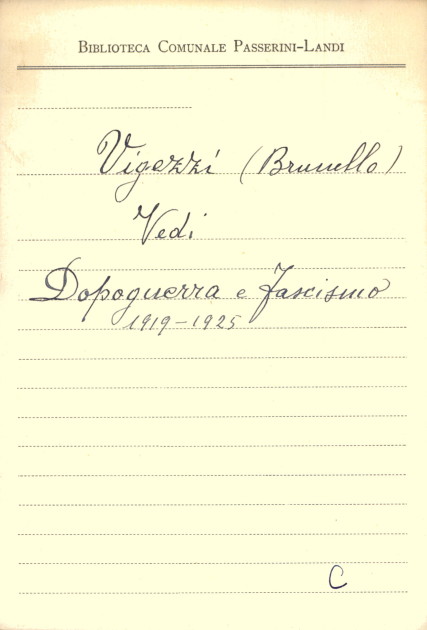 Biblioteca Comunale Passerini-Landi
Vigezzi (Brunello)
Vedi
Dopoguerra e Fascismo
1919-1925
C